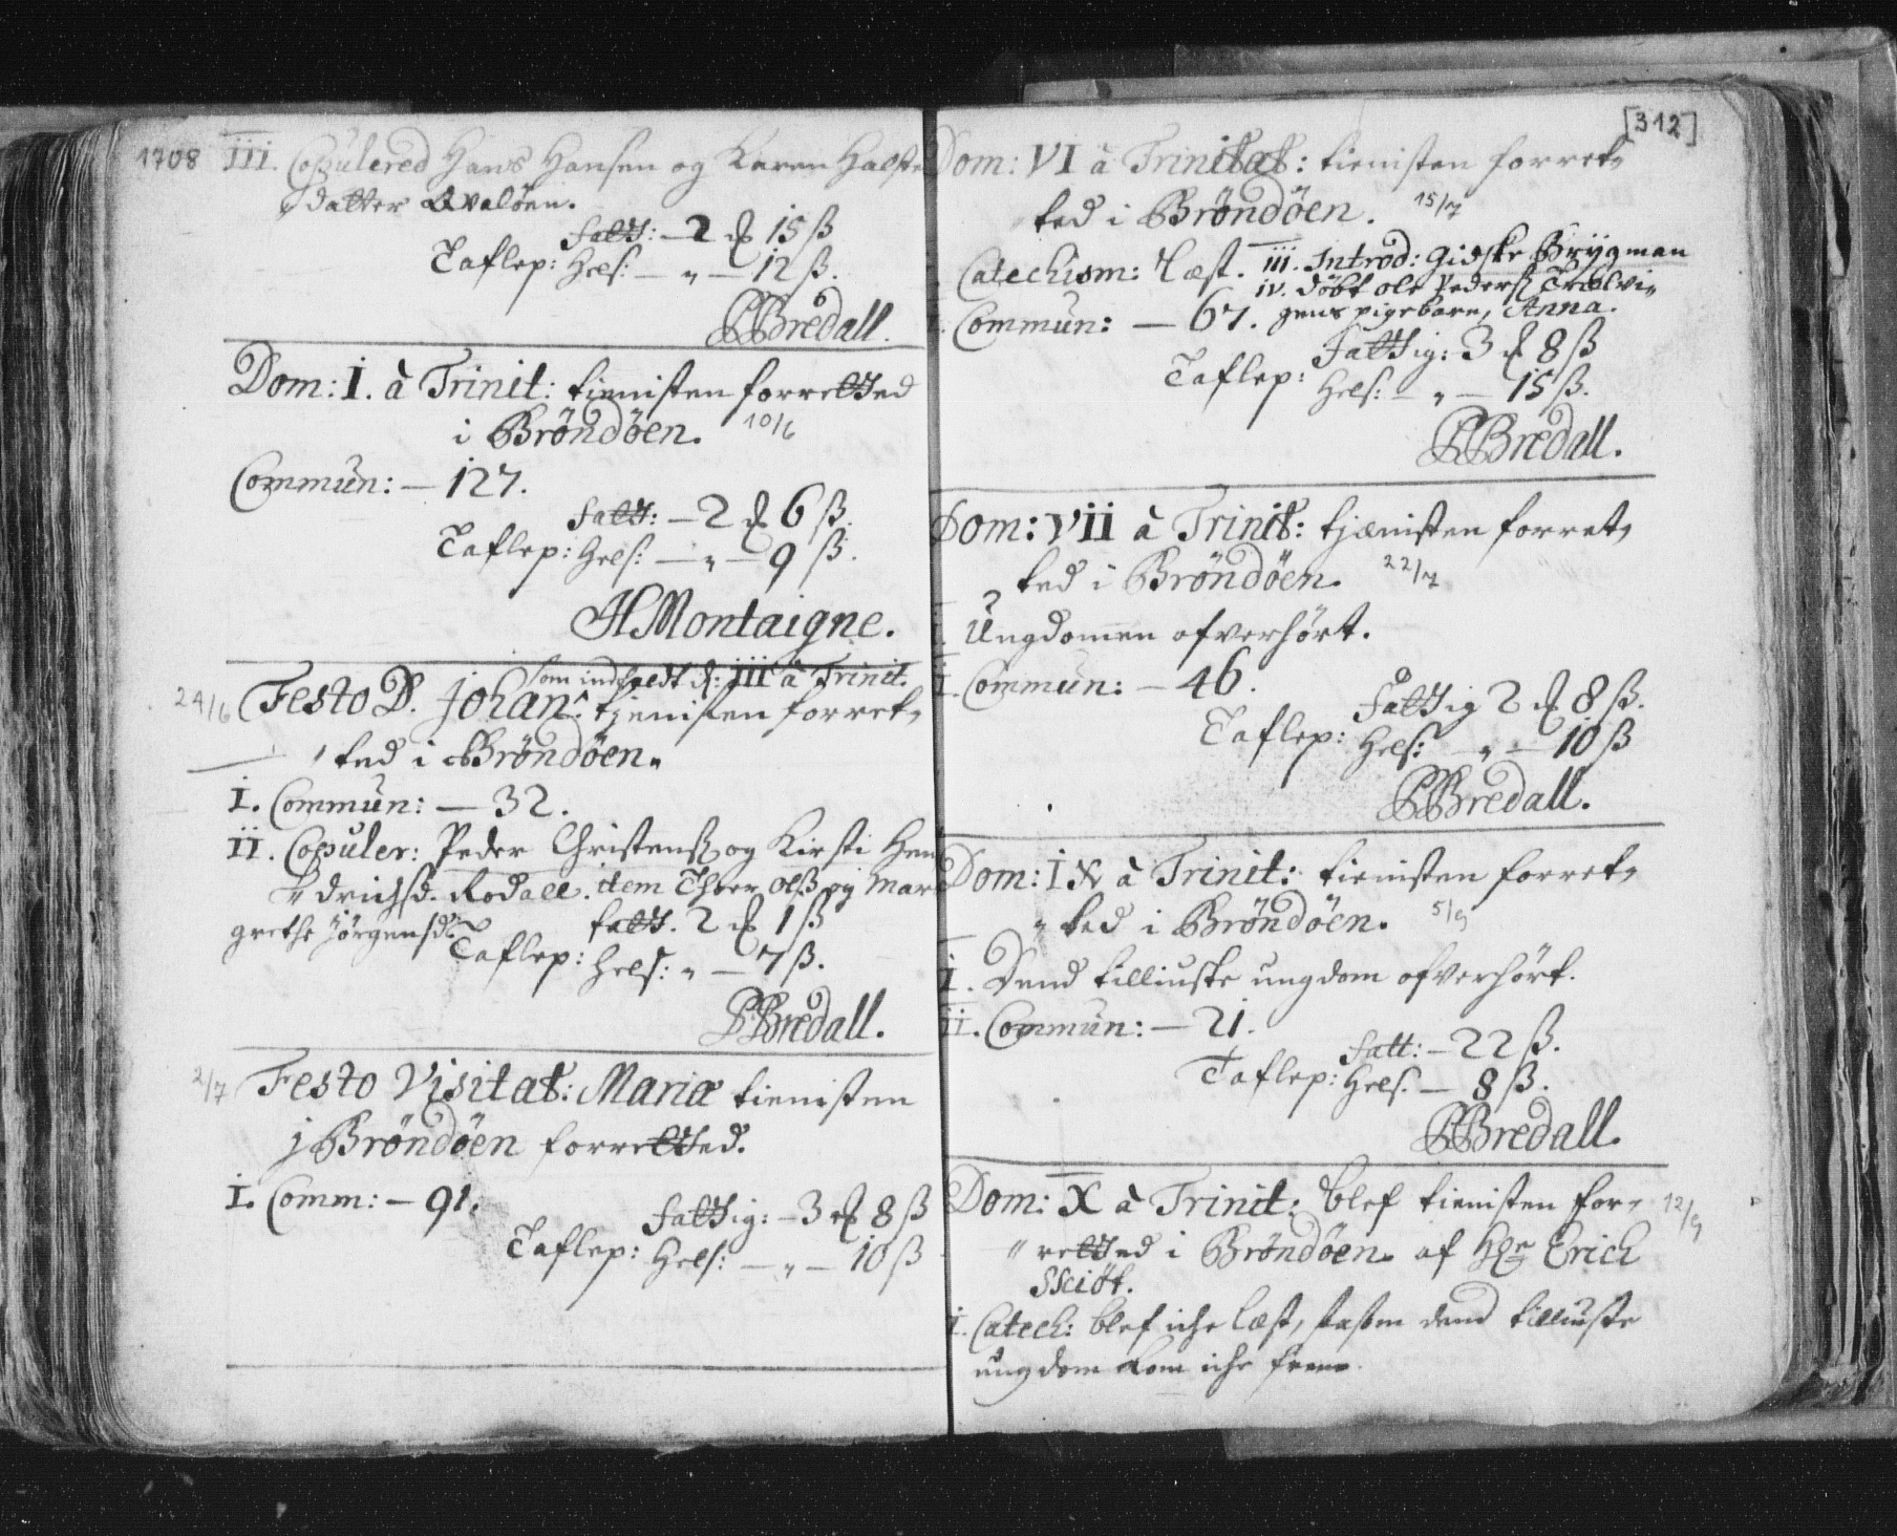 1708 III. Copulered Hans Hansen og Karen Halste
datter Qvalöen.
fatt: – 2 ₰ 15 ß
Taflep: Hels: – „ – 12 ß.
Bredall.
Dom: I. à Trinit: tienisten forretted
i Bröndöen. 10/6
Commun: – 127.
fatt: – 2 ₰ 6 ß.
Taflep: Hels: – „ – 9 ß.
HMontaigne.
som indfaldt d: III à Trinit.
24/6 Festo D. Johan: tjenisten forret„
„ted i Bröndöen„
I. Commun: – 32.
II. Copuler: Peder Christenß og Kirsti Hen
„drichsd. Rodall. item Olß og Mar
grethe Jörgensd:
fatt. 2 ₰ 1 ß
Taflep: Hels: „ – 7 ß.
Bredall.
2/7 Festo Visitat: Mariæ tienisten
j Bröndöen forretted.
I. Comm: – 91.
fattig: – 3 ₰ 8 ß
Taflep: Hels: – „ – 10 ß
[312]
Dom: VI à Trinitat: tienisten forret„
ted i Bröndöen. 15/7
Catechism: Læst. III. Introd: Gidske Brÿgman
IV. döbt ole Pederß Trælvi„
gens pigebarn, Anna.
Commun: – 67.
Fattig: 3 ₰ 8 ß
Taflep: Hels: – „ – 15 ß.
Bredall.
Dom: VII à Trinit: tjænisten forret„
ted i Bröndöen. 22/7
I. Ungdomen ofverhört.
II. Commun: – 46.
Fattig 2 ₰ 8 ß.
Taflep: Hels: – „ – 10 ß
Bredall.
Dom: IX à Trinit: tienisten forret„
„ted i Bröndöen. 5/9
I. Dend tilliuste ungdom ofverhört.
II. Commun: – 21.
fatt: – 22 ß.
Taflep: Hels. – 8 ß.
Bredall.
Dom: X à Trinit: blef tienisten for„ 12/9
„retted i Bröndöen. af Hr Erich
Sciöt.
I. Catech: blef iche læst, dend tilliuste
ungdom kom iche frem.